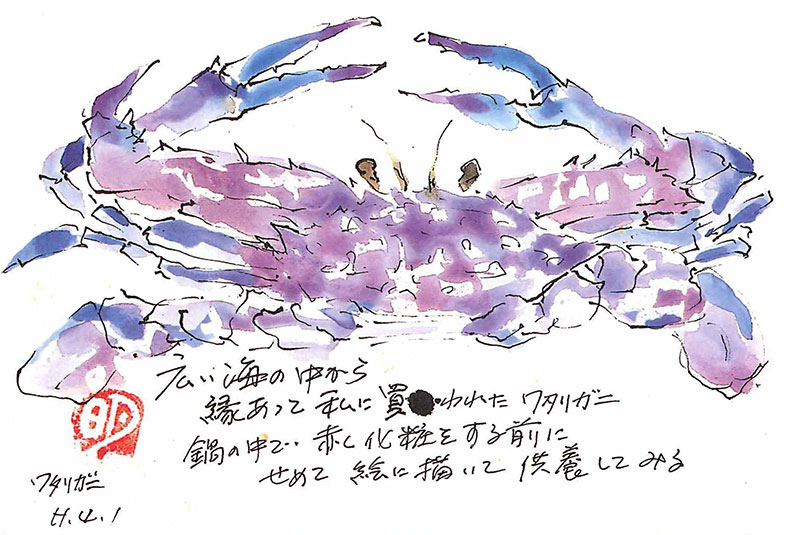 広い海の中から
縁あって私に買われたワタリガニ
鍋の中で‥赤く化粧をする前に
せめて絵に描いて供養してみる
明
ワタリガニ
H.4.1